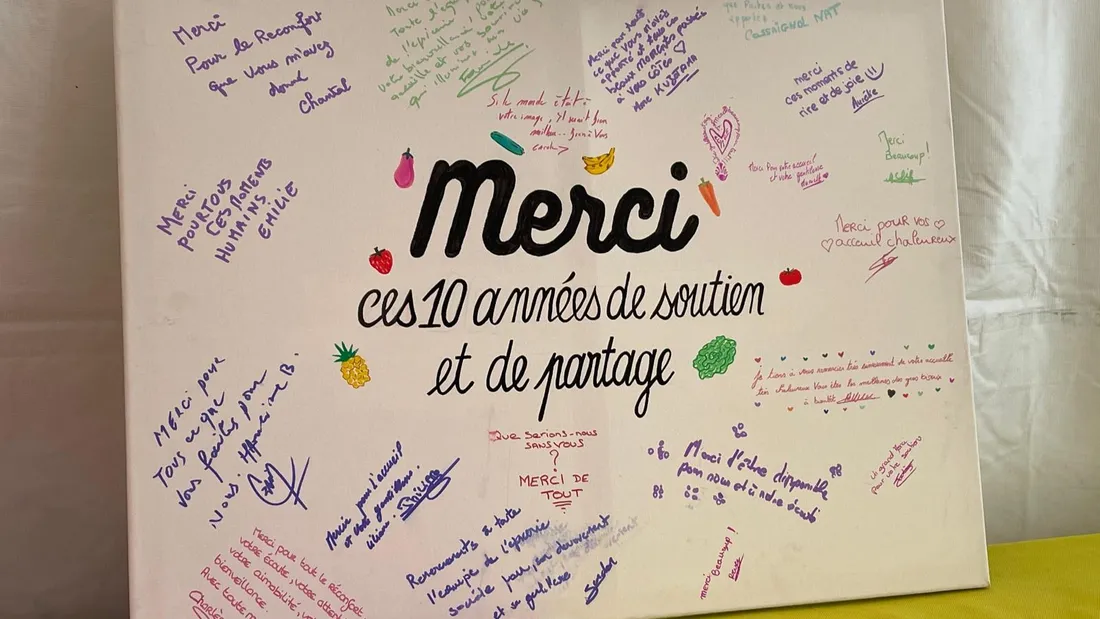 Merci
Pour le Reconfort
que vous m'avez
donné
Chantal
Merci
Toute l'équipe
de l'épicerie pour
votre bienveillance
accueille et vos sourires
qui illumine nos
vies
Merci pour tout
ce que vous m'avez
apporté et tous ces
beaux moments passés
à vos côtés
Mme KUZETAMA
que faites et nous
apportez
CASSAIGNOL NAT
merci
ces moments de
rire et de joie !!!
Si le monde était à
votre image, il serait bien
meilleur... bien à vous
carole
Merci
Beaucoup!
Merci pour votre accueil
et votre gentillesse
MERCI
POUR TOUS
CES MOMENTS
HUMAINS
EMILIE
Merci
ces 10 années de soutien
et de partage
Merci pour vos
accueil chaleureux
je tiens à vous remercier très sincèrement de votre accueille
très chaleureux Vous êtes les meilleures des gros bisoux
à bientôt
MERCI pour
TOUS ce que
vous faites pour
NOUS. Maurine B.
Merci pour l'accueil
et votre gentillesse.
Que serions-nous
SANS VOUS
?
MERCI DE
TOUT
Merci d'être disponible
pour nous et à notre écoute
un grand merci
pour votre soutien
Merci pour tout le réconfort
votre écoute, votre attention
votre aimabilité, votre
bienveillance.
Avec toute m
Charlène
Remerciements a toute
l'équipe de l'épicerie
sociale pour son dévouement
et sa gentillesse
Sandra
merci Beaucoup !